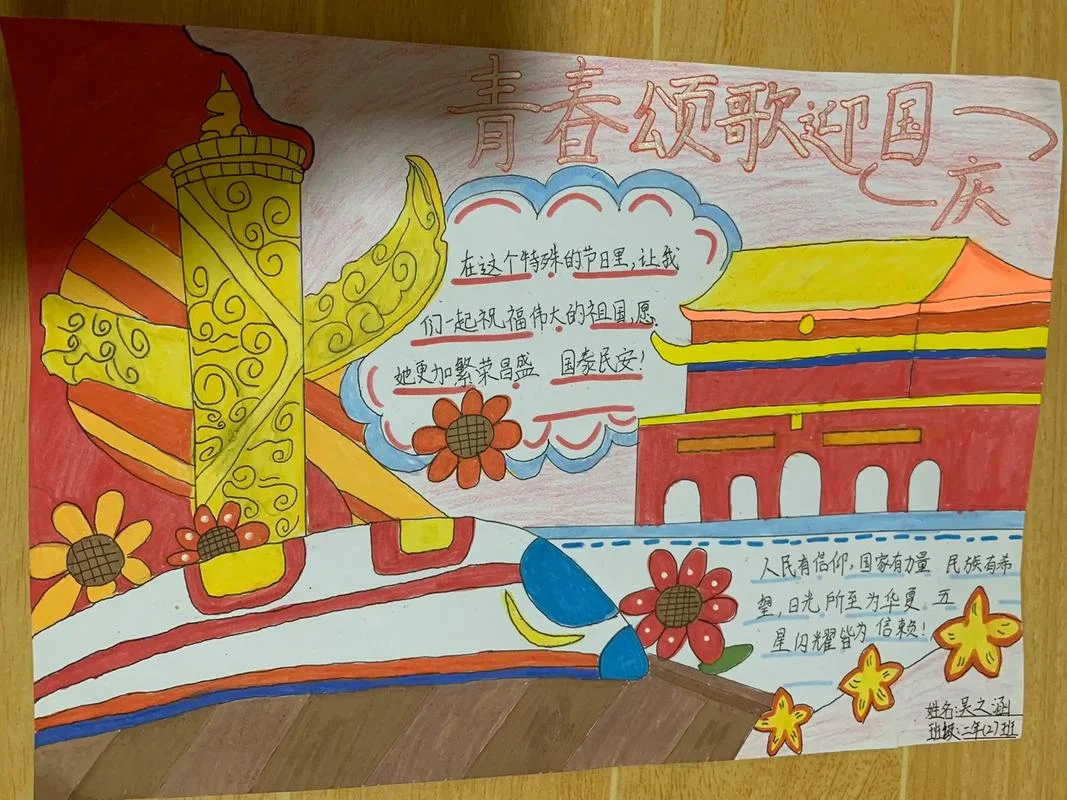 青春颂歌迎国庆
在这个特殊的节日里,让我
们一起祝福伟大的祖国,愿
她更加繁荣昌盛 国泰民安!
人民有信仰,国家有力量 民族有希
望,日光所至为华夏 五
星闪耀皆为信赖!
姓名:吴之涵
班级:二年(2)班